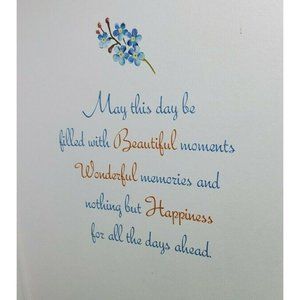 May this day be
filled with Beautiful moments
Wonderful memories and
nothing but Happiness
for all the days ahead.